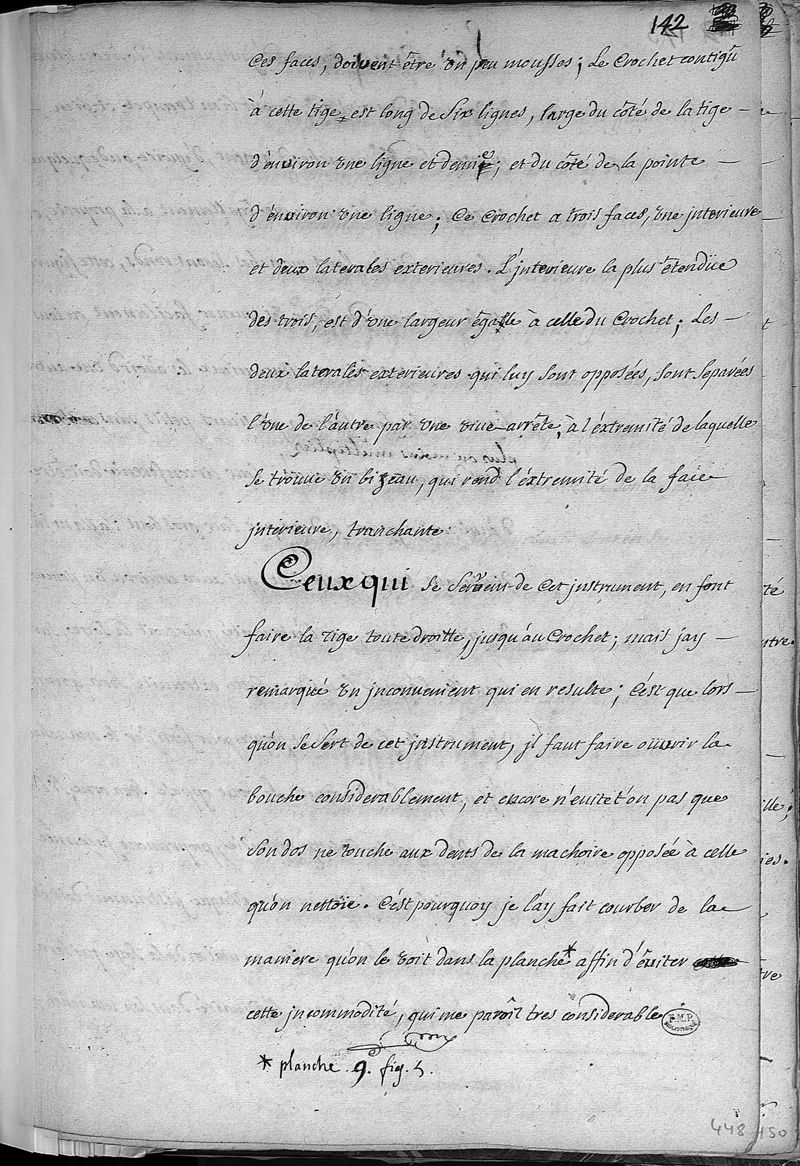 142
Ces faces, doivent être un peu mousses; Le Crochet contigû
à cette tige, est long de Six lignes, large du côté de la tige —
d'énviron une ligne et demie; et du côté de la pointe —
d'énviron une ligne; Ce Crochet a trois faces, une jnterieure
et deux laterales exterieures. L'jnterieure la plus êtendüe
des trois, est d'une largeur égalle à celle du Crochet; Les —
deux laterales exterieures qui luy sont opposées, sont Separées
l'une de l'autre par une vive-arrête, à l'éxtremité de laquelle
plus ou moins multiplié,
Se trouve un bizeau, qui rend l'éxtremité de la face
jnterieure, tranchante.
Ceux qui se servent de Cet jnstrument, en font
faire la Tige toute droitte, jusqu'au Crochet; mais jay —
remarqué un jnconvenient qui en resulte; C'ést que lors —
qu'on se Sert de cet jnstrument, jl faut faire ouvrir la
bouche considerablement, et encore n'évitet'on pas que
Son dos ne touche aux dents de la machoire opposée à celle
qu'on nettoïe. C'ést pourquoy je l'ay fait courber de la
maniere qu'on le voit dans la planche * affin d'éviter
cette jncommodité, qui me paroît tres considerable
* planche. 9. fig. 5.
448 150